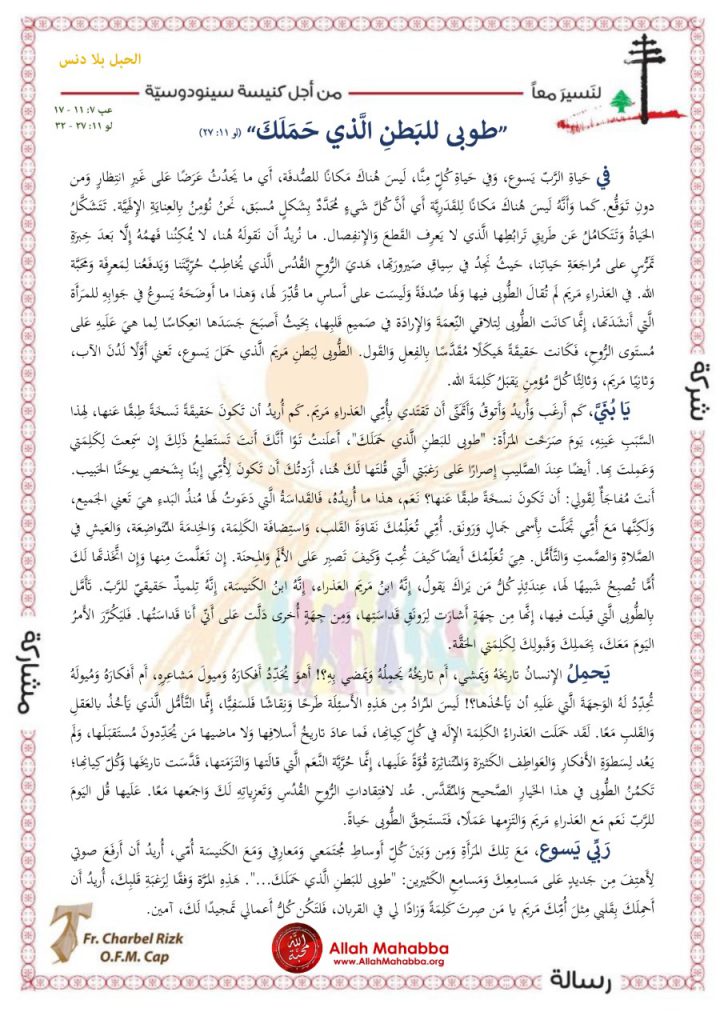 الحبل بلا دنس
لنَسيرَ معاً
من أجل كنيسة سينودوسيّة
عب ٧: ١١ - ١٧
لو ١١: ٢٧ - ٣٢
”طوبى للبَطنِ الَّذي حَمَلَكَ“ (لو ١١: ٢٧)
في حَياةِ الرَّبّ يَسوع، وَفي حَياةِ كُلٍّ مِنَّا، لَيسَ هُناكَ مَكانًا للصُدفَة، أي ما يَحدُثُ عَرَضًا عَلى غَيرِ انتِظارٍ وَمن
دونِ تَوَقُّع. كَما وَأنَّهُ لَيسَ هُناكَ مَكانًا لِلقَدَرِيَّة أي أنَّ كُلَّ شَيءٍ مُحَدَّدٌ بِشَكلٍ مُسبَق، نَحنُ نُؤمِنُ بِالعِنايَةِ الإلَهِيَّة. تَتَشَكَّلُ
الحَياةُ وَتَتَكامَلُ عَن طَريقِ تَرابُطِها الَّذي لا يَعرِف القَطعَ وَالإنفِصال. ما نُريدُ أن نَقولَهُ هُنا، لا يُمكِنُنا فَهمُهُ إلَّا بَعدَ خِبرَةِ
تَمَرُّسٍ على مُراجَعَةِ حَياتِنا، حَيثُ نَجِدُ في سِياقِ صَيرورَتِها، هَديَ الرُّوحِ القُدُس الَّذي يُخاطِبُ حُرِّيَّتَنا وَيَدفَعُنا لِمَعرِفَة وَمَحَبَّة
الله. في العَذراءِ مَريَم لَم تُقالَ الطُّوبى فيها وَلَها صُدفَةً وَلَيسَت عَلى أساسِ ما قُدِّرَ لَها، وَهذا ما أوضَحَهُ يَسوعُ في جَوابِهِ للمَرأَة
الَّتي أنشَدَتها، إنَّما كانَت الطُّوبى لِتلاقي النِّعمَةَ وَالإرادَة في صَميمِ قَلبِها، بِحَيثُ أصبَحَ جَسَدَها انعِكاسًا لِما هيَ عَلَيهِ عَلى
مُستَوى الرُّوح، فَكانَت حَقيقَةً هَيكَلًا مُقَدَّسًا بِالفِعلِ وَالقَول. الطُّوبى لِبَطنِ مَريَم الَّذي حَمَلَ يَسوع، تَعني أوَّلًا لَدُنَ الآب،
وَثانِيًا مَريَم، وَثالِثًا كُلَّ مُؤمِنٍ يَقبَلُ كَلِمَةَ الله.
يَا بُنَيَّ، كَم أرغَب وَأُريدُ وَأتوقُ وَأتَمَنَّى أن تَقتَدي بِأُمِّي العَذراءِ مَريَم. كَم أُريدُ أن تَكونَ حَقيقَةً نَسخَةً طِبقًا عَنها، لِهذا
السَّبَبِ عَينِهِ، يَومَ صَرَخَت المَرأة: "طوبى للبَطنِ الَّذي حَمَلَكَ"، أعلَنتُ تَوًّا أنَّكَ أنتَ تَستَطيعُ ذَلِكَ إن سَمِعتَ لِكَلِمَتي
وَعَمِلتَ بِها. أيضًا عِندَ الصَّليبِ إصرارًا عَلى رَغبَتي الَّتي قُلتَها لَكَ هُنا، أرَدتُكَ أن تَكونَ لِأُمِّي إبنًا بِشَخصِ يوحَنَّا الحَبيب.
أنتَ مُفاجَأٌ لِقَولي: أن تَكونَ نسخَةً طبقًا عَنها؟ نَعَم، هذا ما أُريدُهُ، فَالقَداسَةُ الَّتي دَعَوتُ لَها مُنذُ البَدءِ هيَ تَعني الجَميع،
وَلَكِنَّها مَعَ أُمِّي تَجَلَّت بِأسمى جَمالٍ وَرَونَق. أُمِّي تُعَلِّمُكَ نَقاوَةَ القَلب، وَاستِضافَة الكَلِمَة، وَالخِدمَة المُتَواضِعَة، وَالعَيش في
الصَّلاةِ وَالصَّمتِ وَالتَّأمُّل. هِيَ تُعَلِّمُكَ أيضًا كَيفَ تُحِبّ وَكَيفَ تَصبِر عَلى الألَمِ وَالمِحنَة. إن تَعَلَّمتَ مِنها وَإن اتَّخَذتَها لَكَ
أُمًّا تُصبِحُ شَبيهًا لَها، عِندَئِذٍ كُلُّ مَن يَراكَ يَقولُ، إنَّهُ ابنُ مَريَم العَذراء، إنَّهُ ابنُ الكَنيسَة، إنَّهُ تِلميذٌ حَقيقيٌّ للرَّبّ. تَأمَّل
بِالطُّوبى الَّتي قيلَت فيها، إنَّها مِن جِهَةٍ أشارَت لِرَونَقِ قَداسَتِها، وَمِن جِهَةٍ أُخرى دَلَّت عَلى أنِّي أنا قَداسَتُها. فَليَكُرَّرَ الأمرُ
اليَومَ مَعَكَ، بِحَملِكَ وَقَبولِكَ لِكَلِمَتي الحَقَّة.
يَحمِلُ الإنسانُ تاريخَهُ وَيَمشي، أم تاريخُهُ يَحمِلُهُ وَيَمضي بِهِ؟! أهوَ يُحَدِّدُ أفكارَهُ وَميولَ مَشاعِرِهِ، أم أفكارَهُ وَمُيولَهُ
تُحَدِّدُ لَهُ الوِجهَةَ الَّتي عَلَيهِ أن يَأخُذَها؟! لَيسَ المُرادُ مِن هَذِهِ الأسئِلَة طَرحًا وَنِقاشًا فَلسَفِيًّا، إنَّما التَّأمُّل الَّذي يَأخُذُ بِالعَقلِ
وَالقَلبِ مَعًا. لَقَد حَمَلَت العَذراءُ الكَلِمَةَ الإلَه في كُلِّ كِيانِها، فَما عادَ تاريخُ أسلافِها وَلا ماضيها مَن يُحَدِّدونَ مُستَقبَلَها، وَلَم
يَعُد لِسَطوَةِ الأفكارِ وَالعَواطِف الكَثيرَة وَالمُتَناثِرَة قُوَّةً عَلَيها، إنَّما حُرِّيَّةُ النَّعَم الَّتي قالَتها وَالتَزَمَتها، قَدَّسَت تاريخَها وَكُلَّ كِيانِها؛
تَكمُنُ الطُّوبى في هذا الخَيارِ الصَّحيحِ وَالمُقَدَّس. عُد لافتِقاداتِ الرُّوحِ القُدُسِ وَتَعزِياتِهِ لَكَ وَاجمَعها مَعًا. عَلَيها قُل اليَومَ
للرَّبّ نَعَم مَعَ العَذراءِ مَريَم وَالتَزِمها عَمَلًا، فَتَستَحِقَّ الطُّوبى حَياةً.
رَبِّي يَسوع، مَعَ تِلكَ المَرأةِ وَمِن وَبَينَ كُلِّ أوساطِ مُجتَمَعي وَمَعارِفي وَمَعَ الكَنيسَة أُمِّي، أُريدُ أن أرفَعَ صَوتي
لِأهتِفَ مِن جَديدٍ عَلى مَسامِعِكَ وَمَسامِعِ الكَثيرين: "طوبى للبَطنِ الَّذي حَمَلَكَ...". هَذِهِ المَرَّة وَفقًا لِرَغبَةِ قَلبِكَ، أُريدُ أن
أحمِلَكَ بِقَلبي مِثلَ أُمِّكَ مَريَم يا مَن صِرتَ كَلِمَةً وَزادًا لي في القربان، فَلتَكُن كُلُّ أعمالي تَمجيدًا لَكَ، آمين.
شركة
مشاركة
رسالة
Fr. Charbel Rizk
O.F.M. Cap
الله محبة
Allah Mahabba
www.AllahMahabba.org